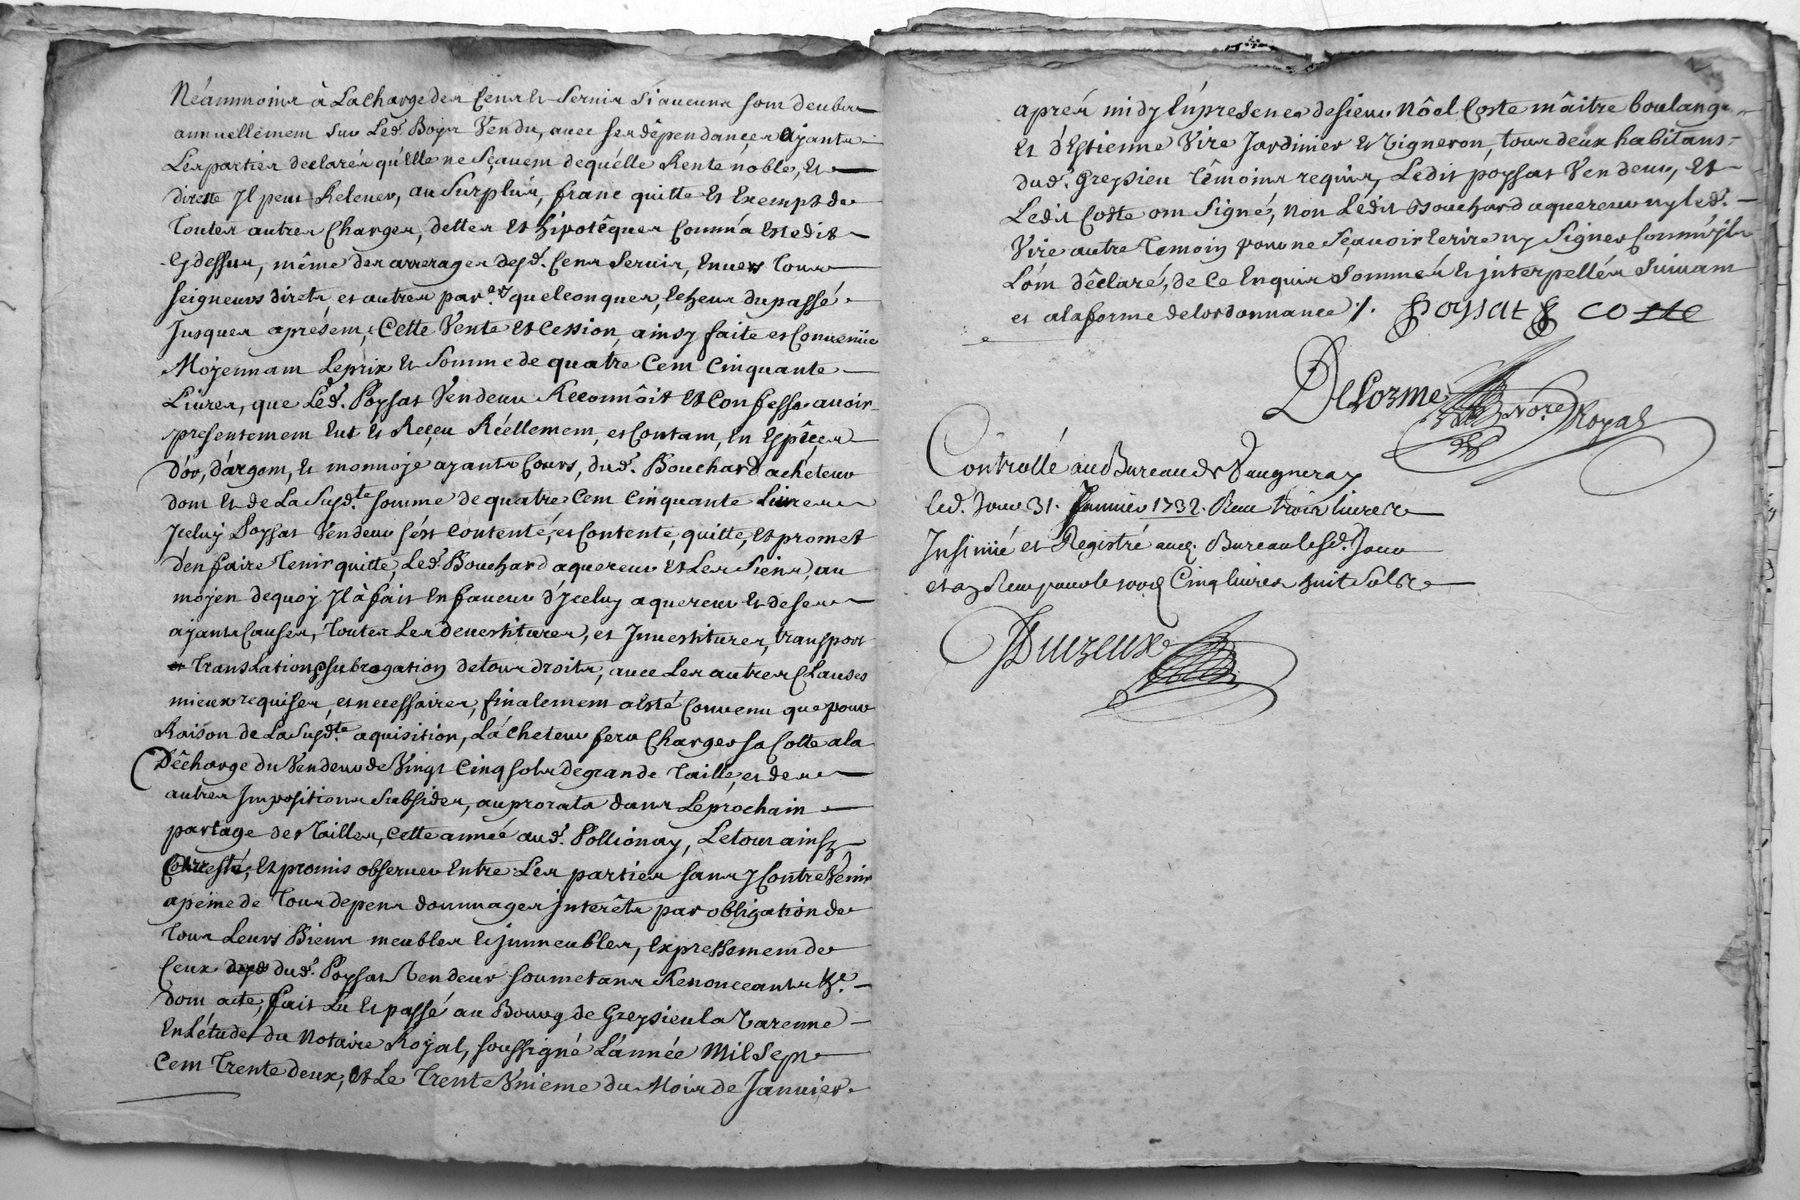 Néammoins à La Charge des Cens et Servis si aucuns sont deubs
annuellement sur Led. Boys Vendu, avec ses dépendances ayants
Les parties declarés qu'Elle ne Sçavent de quélle Rente noble, et
directe Il peut Relever, au Surplus, franc quitte Et Exempt de
Toutes autres Charges, dettes Et hipotêques Comm'a Est edit
Cydessus, même des arrerages desd. Cens Servis, Envers Tous
seigneurs directs et autres par.ers quelconques, Echeus du passé
Jusques aprésent, Cette Vente et Cession, ainsy faite et Convenüe
Moyennant Leprix et Somme de quatre Cent Cinquante
Livres, que Léd. Poysat Vendeur Reconnôit Et Confesse avoir
presentement Eut et Reçeu Réellement, et Contant, En Espêces
d'or, d'argent, et monnoye ayants Cours, dud. Bouchard acheteur
dont et de La Susd.te somme de quatre Cent Cinquante Livres
Jceluy Poysat Vendeur s'est Contenté, et Contente, quitte, et promet
d'en faire Tenir quitte Led. Bouchard aquereur et Les Siens, au
moyen dequoy Jl à fait En faveur d'Jceluy aquereur et de ses
ayants Causes, Toutes Les devestitures, et Jnvestitures, transport
Translation subrogation de tous droits, avec Les autres Clauses
mieux requises, et necessaires, finalement a Esté Convenu que pour
Raison de La Susd.te aquisition, L'acheteur fera Charger sa Cotte a la
Dêcharge du Vendeur de Vingt Cinq sols de grande Taille, et des
autres Jmpositions Subsides, au prorata dans Le prochain
partage des Tailles, Cette année aud. Pollionay, Le tout ainsy
Et promis observer Entre Les parties sans y Contrevênir
apeine de Tous depens dommages jnterêts par obligation de
Tous Leurs Biens meubles et jmmeubles, Expressement de
Ceux dud. Poysat Vendeur soumetans Renonceants &c.
dont acte, fait Lu Et passé au Bourg de Greysieu la Varenne
En L'étude du Notaire Royal, soussigné L'année Mil Sept
Cent Trente deux, et Le Trente Vnieme du Mois de Janvier
aprés midy En presence de sieur Nôel Coste maître boulanger
Et d'Estienne Vire Jardinier Et Vigneron, tous deux habitans
dud. Greysieu Têmoins requis, Ledit poysat Vendeur, Et
Ledit Coste ont Signé, non Lédit Bouchard aquereur ny led.
Vire autre Temoin pour ne Sçavoir Ecrire ny Signer Comm'jls
L'ont dêclaré, de ce Enquis Sommés et jnterpellés Suivant
et a la forme de L'ordonnance %. Poysat & COSte
Delorme No.re Royal
Controllé au Bureau de Vaugneray
led. Jour 31. Janvier 1732. Receu trois livres
Insinué et Registré aud. Bureau lesd. Jour
et an Receu pour le Cinq livres huit Sols
Duzeux